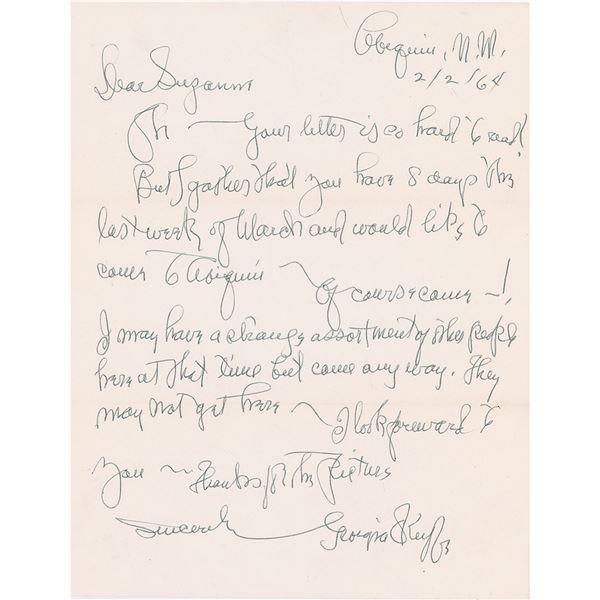 Abiquiu, N.M.
2/2/64
Dear Suzanne
Oh — Your letter is so hard to read!
But I gather that you have 8 days the
last week of March and would like to
come to Abiquiu ~
Of course come — !
I may have a strange assortment of other people
here at that time but come any way. They
may not get here ~ I look foreward to
you ~ Thanks for the pictures
Sincerely
Georgia O'Keeffe